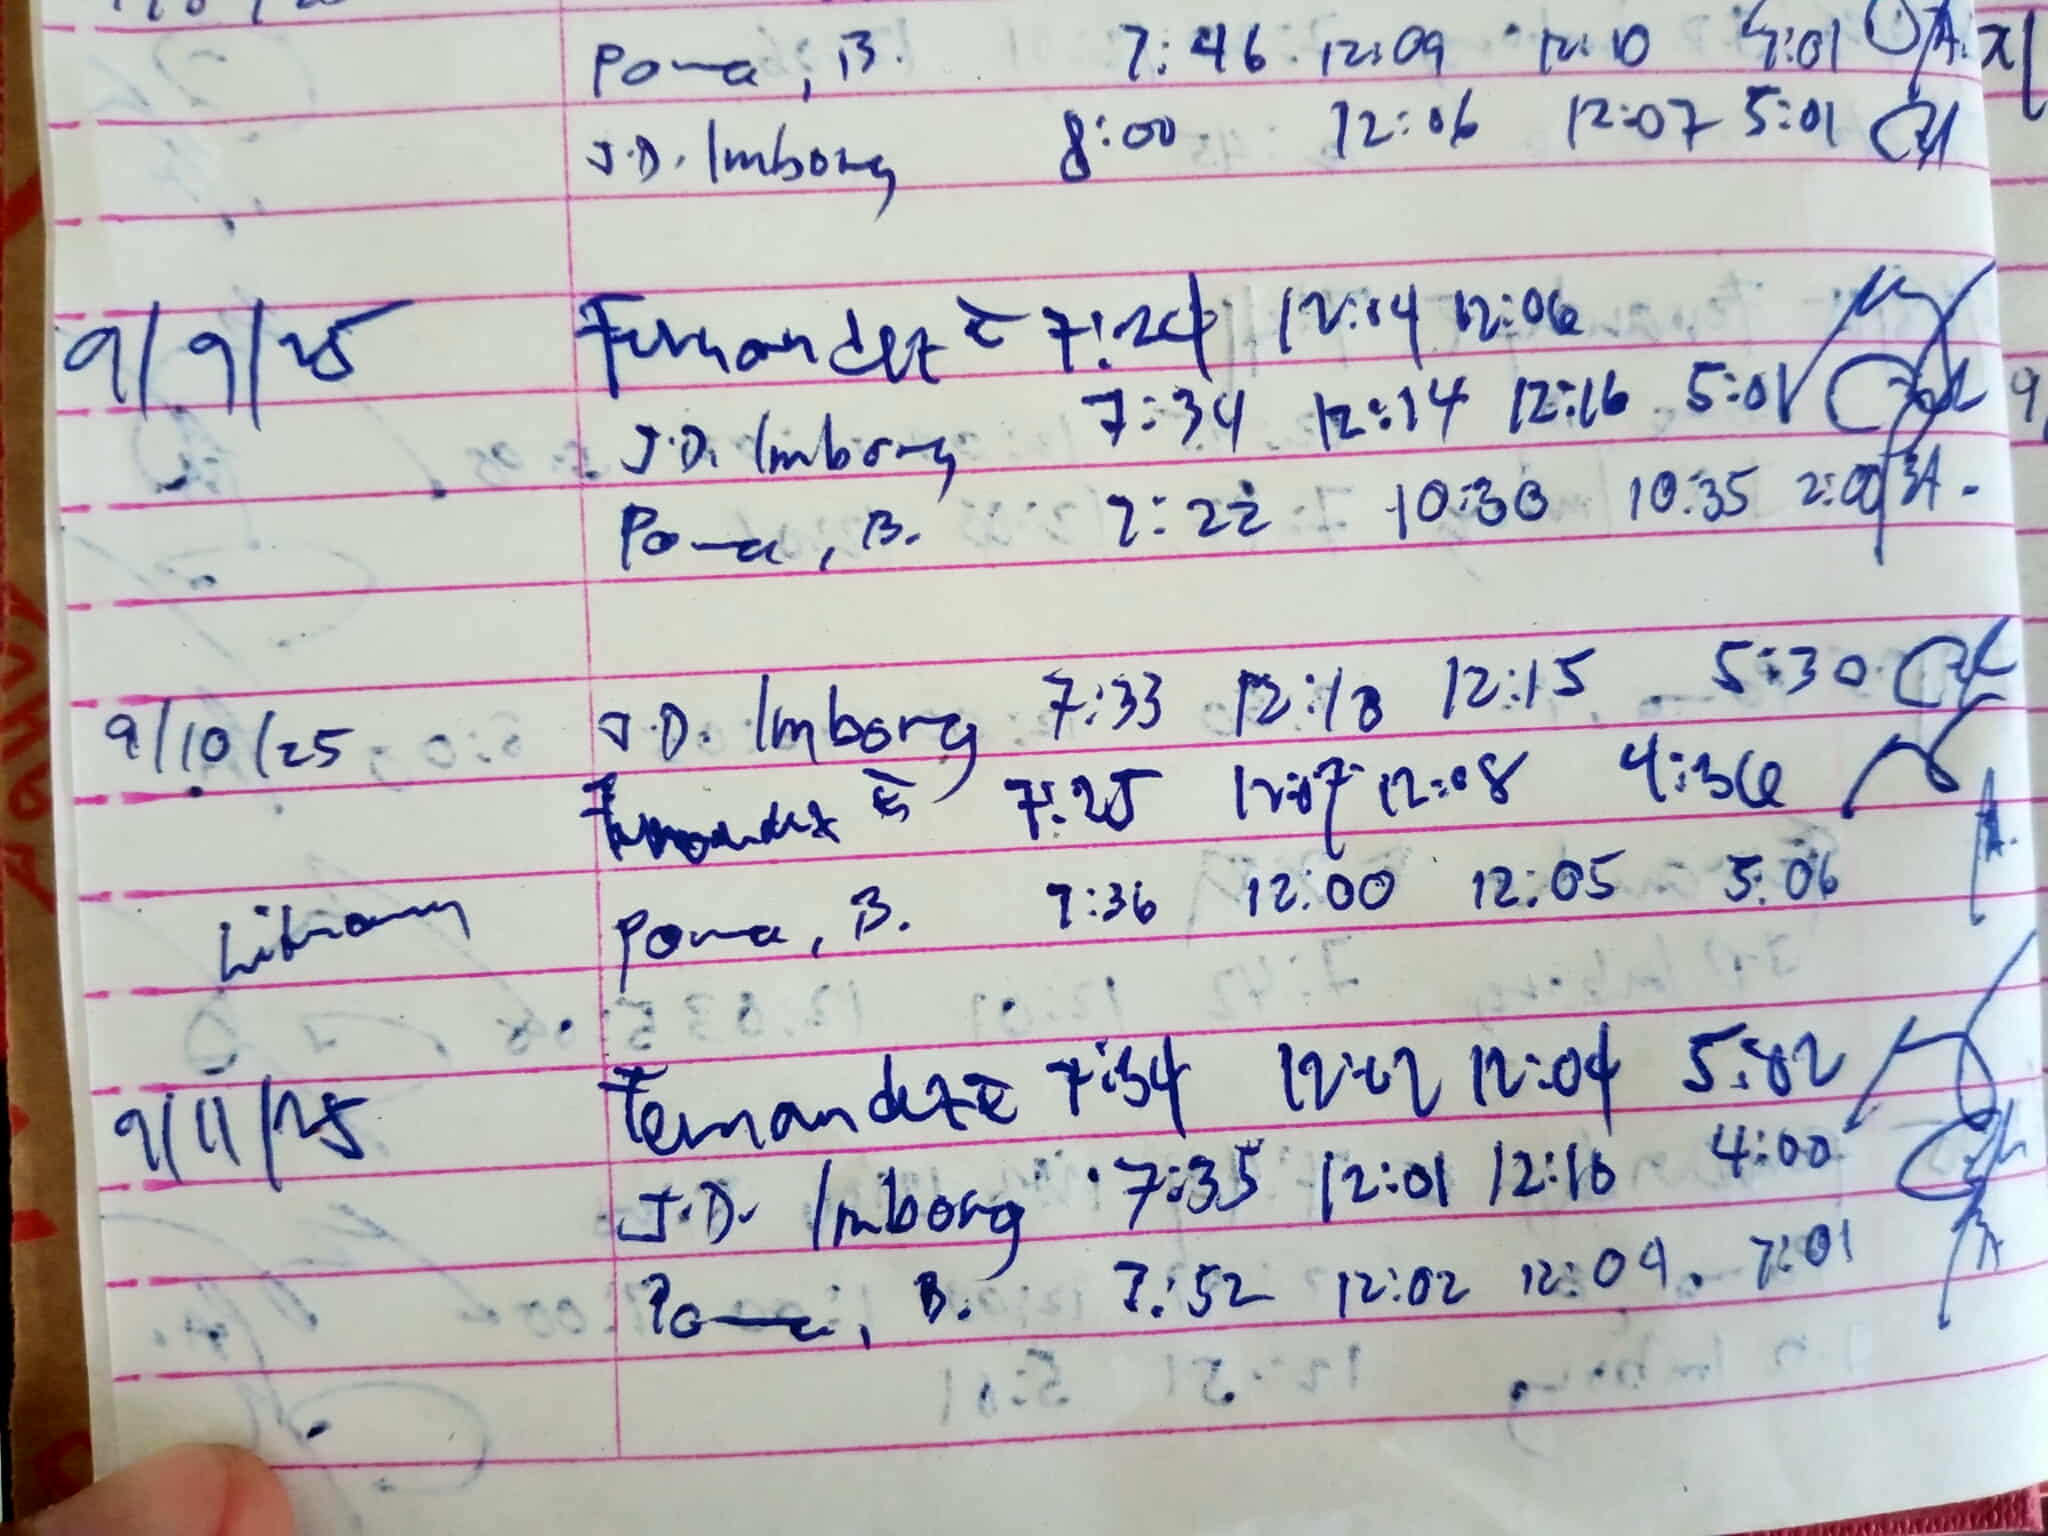 Poma, B. 7:46 12:09 12:10 5:01
J.D. Imborg 8:00 12:06 12:07 5:01
9/9/25 Fernandez E 7:24 12:04 12:06
J.D. Imborg 7:34 12:14 12:16 5:01
Poma, B. 7:22 10:30 10:35 2:00
9/10/25 J.D. Imborg 7:33 12:13 12:15 5:30
Fernandez E 7:25 12:07 12:08 4:36
Library Poma, B. 7:36 12:00 12:05 5:06
9/11/25 Fernandez E 7:34 12:02 12:04 5:02
J.D. Imborg 7:35 12:01 12:10 4:00
Poma, B. 7:52 12:02 12:04 7:01